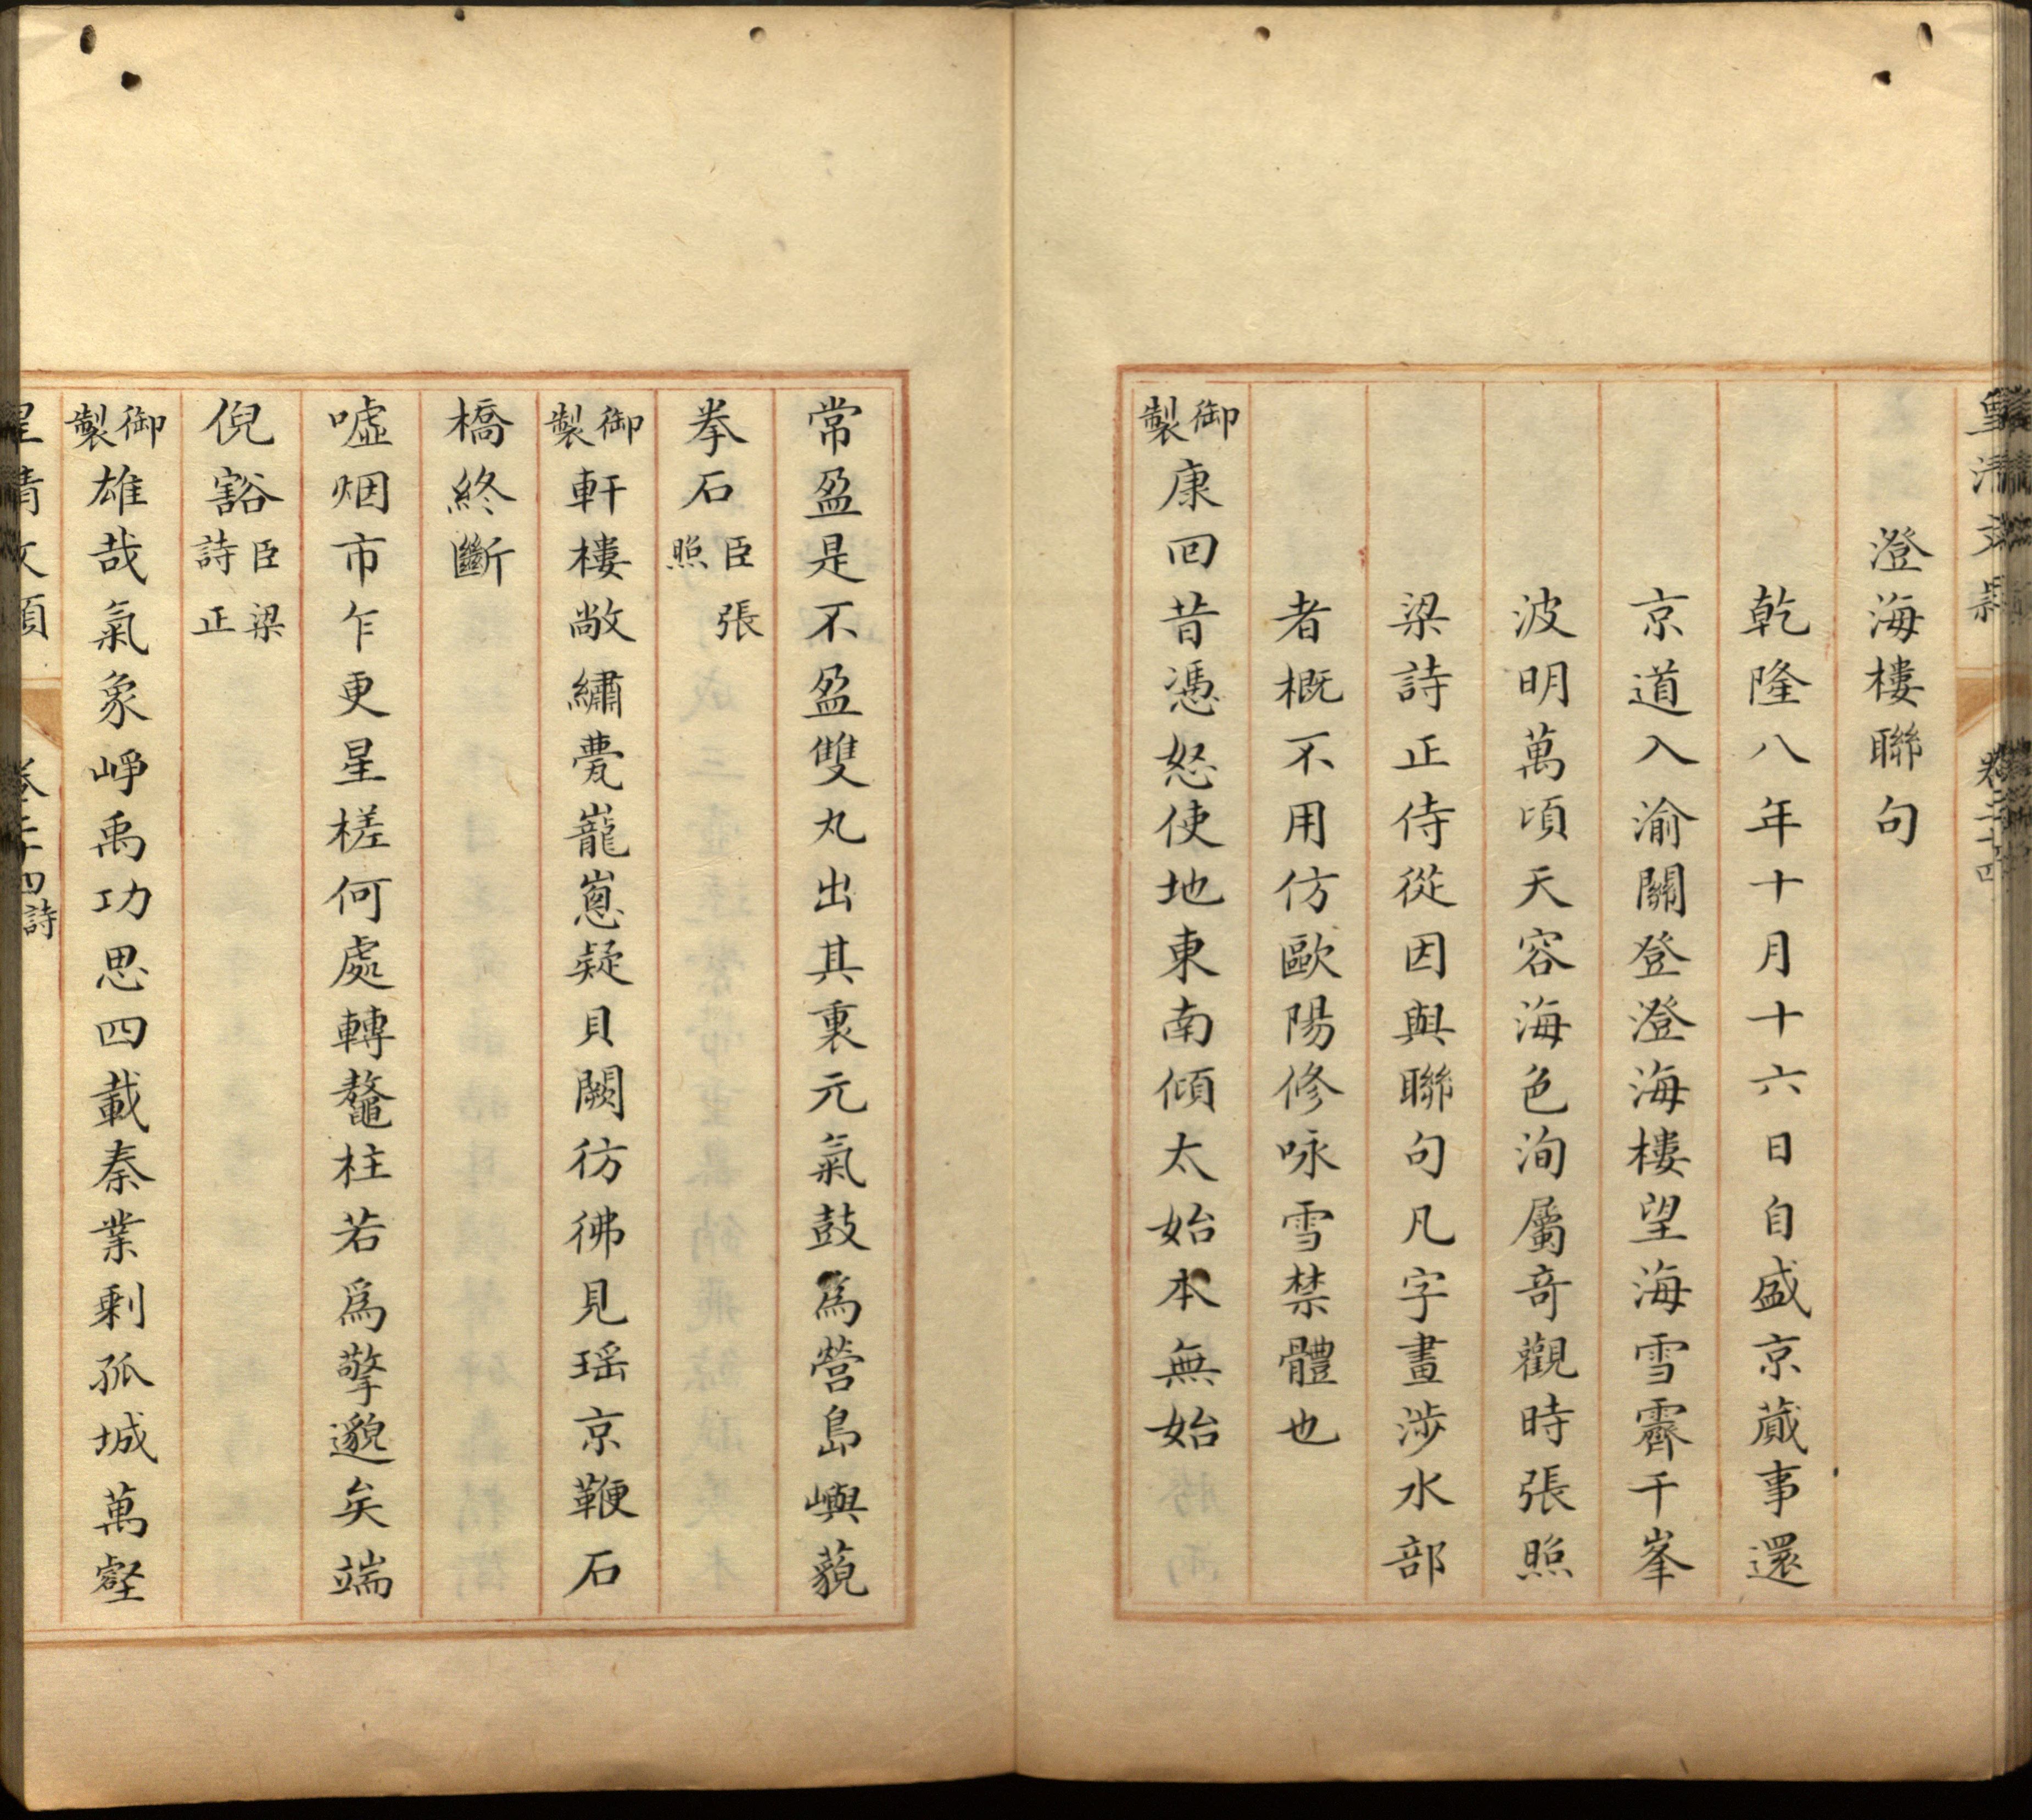 澄海樓聯句
乾隆八年十月十六日自盛京蕆事還
京道入渝關登澄海樓望海雪霽千峯
波明萬頃天容海色洵屬奇觀時張照
梁詩正侍從因與聯句凡字畫涉水部
者概不用仿歐陽修咏雪禁體也
御製康回昔憑怒使地東南傾太始本無始
常盈是不盈雙丸出其裏元氣鼓為營島嶼藐
拳石臣張照
御製軒樓敞繡甍巃嵸疑貝闕彷彿見瑶京鞭石
橋終斷
噓烟市乍更星槎何處轉鼇柱若爲擎邈矣端
倪豁臣梁詩正
御製雄哉氣象崢禹功思四載秦業剩孤城萬壑
皇清文穎 卷二十四詩